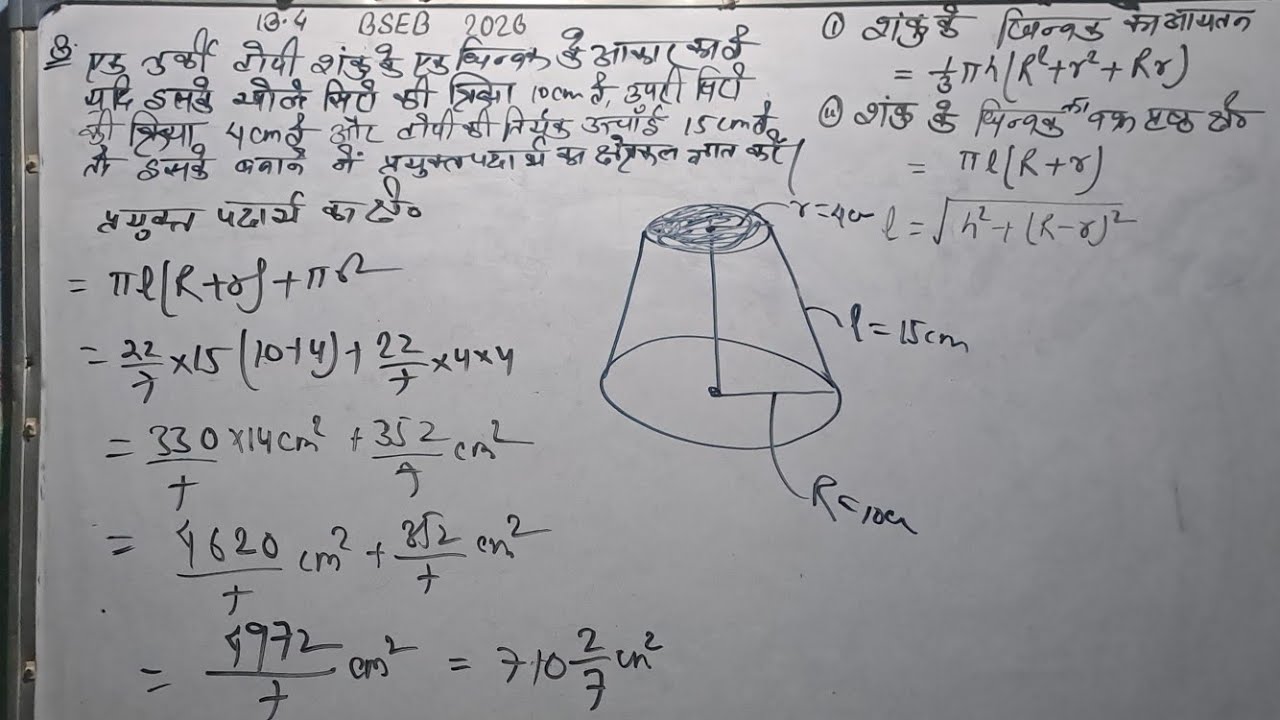 13.4 BSEB 2026
Q. एक तुर्की टोपी शंकु के एक छिन्नक के आकार का है
यदि इसके खुले सिरे की त्रिज्या 10cm है, ऊपरी सिरे
की त्रिज्या 4cm है और टोपी की तिर्यक ऊंचाई 15cm है
तो इसके बनाने में प्रयुक्त पदार्थ का क्षेत्रफल ज्ञात करें।
प्रयुक्त पदार्थ का क्षे०
= πl(R+r) + πr²
= 22/7 ×15 (10+4) + 22/7 ×4×4
= 330/7 ×14 cm² + 352/7 cm²
= 4620/7 cm² + 352/7 cm²
= 4972/7 cm² = 710 2/7 cm²
(i) शंकु के छिन्नक का आयतन
= 1/3 πh(R²+r²+Rr)
(ii) शंकु के छिन्नक का वक्र पृष्ठ क्षे०
= πl(R+r)
l = √h²+(R-r)²
r=4cm
l=15cm
R=10cm